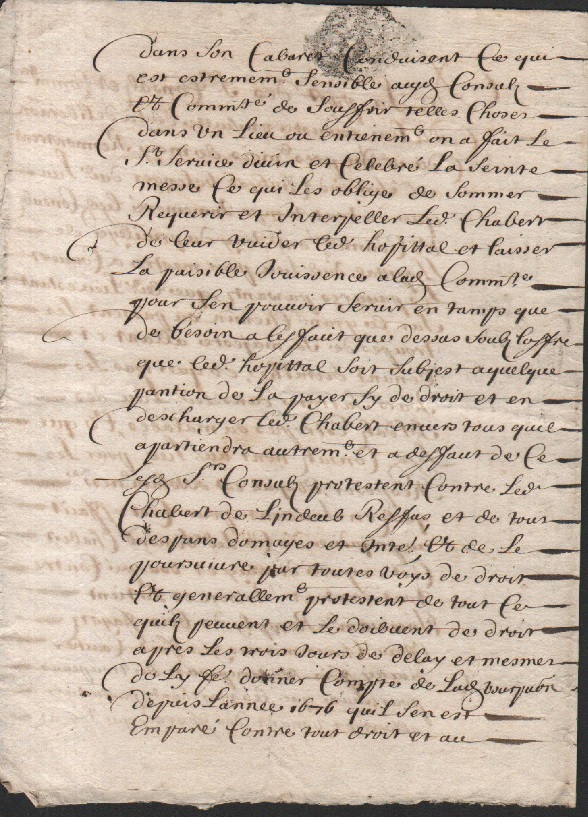 dans son Cabaret Conduisent Ce qui
est estrememt sensible ausd Consulz
Et Commte de souffrir telles Choses
dans un Lieu ou entienemt on a fait Le
St service divin et Celebré La seinte
messe Ce qui Les oblige de sommer
Requerir et Interpeller Led. Chabert
de leur vuider led. hopittal et laisser
La paisible Jouissence a lad Commte
pour sen pouvoir servir en tamps que
de besoin a les fait que dessus soubz loffre
que led. hopittal soit subjest a quelque
pantion de La payer sy de droit et en
descharger led. Chabert envers tous quil
apartiendra autremt et a deffaut de Ce
lesd Srs Consulz protestent Contre Led
Chabert de Lindeub Reffus et de tous
despans domages et Inte. Et de Le
poursuivre par toutes voyes de droit
Et generallemt protestent de tout Ce
quilz peuvent et Le doibvent de droit
apres Les trois Jours de delay et mesmes
de Ly fe. donner Compte de Lad usurpaon
depuis Lannee 1676 quil sen est
Emparé Contre tout droit et au